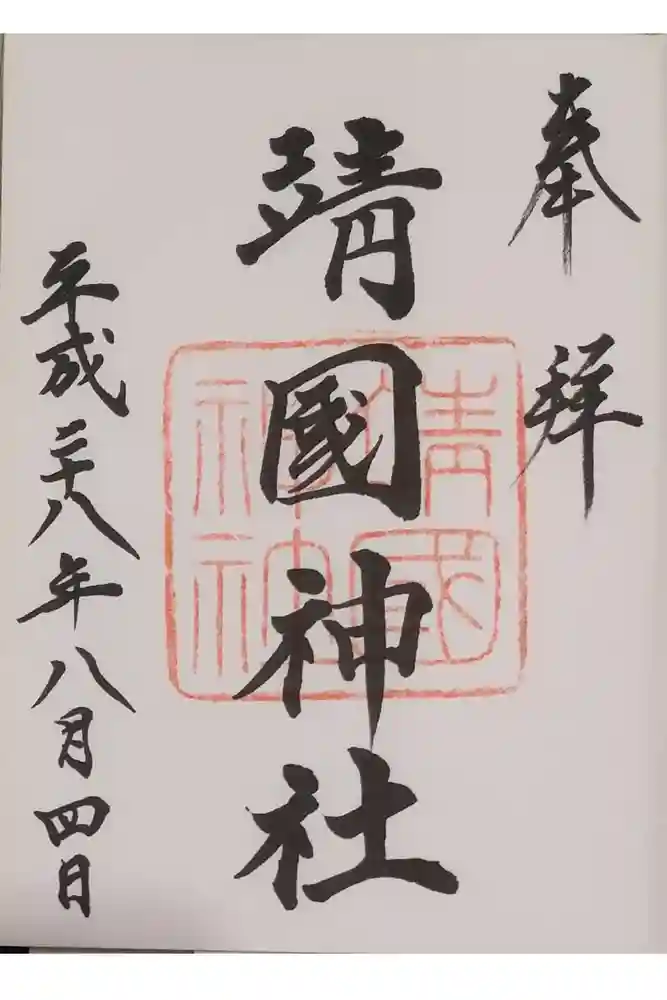 奉拝
靖國神社
靖國神社
平成二十八年八月四日